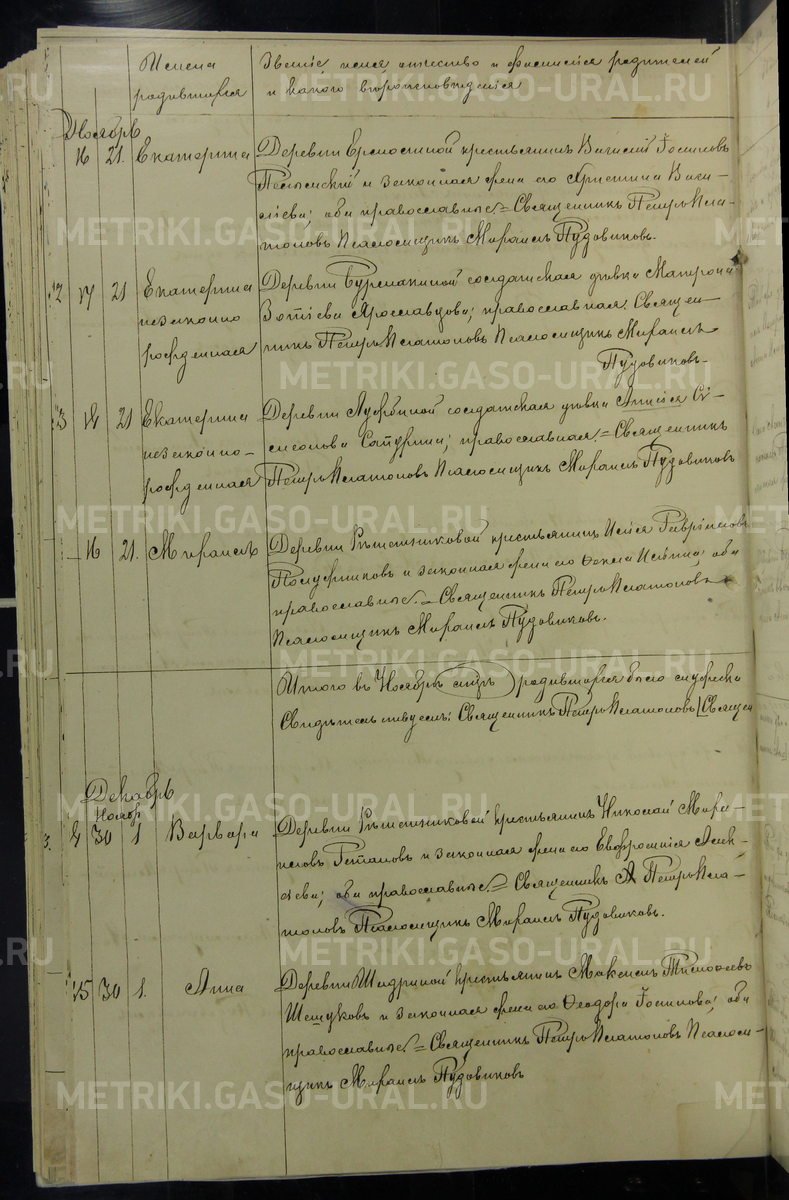 Имена родившихся
Званіе, имя, отчество и фамилія родителей
и какого вѣроисповѣданія
Ноябрь
16 21. Екатерина
Деревни крестьянинъ Василій Іосифовъ
и законная жена его Христина Васи-
ліева; оба православные. Священникъ Петръ Пла-
тоновъ Псаломщикъ Михаилъ Пудовиковъ.
2 17 21 Екатерина
незаконно
рожденная
Деревни Бурмакиной солдатская дѣвка Матрона
Зотіева Ярославцова; православная. Священ-
никъ Петръ Платоновъ Псаломщикъ Михаилъ
Пудовиковъ.
3 21 Екатерина
незаконно-
рожденная
Деревни солдатская дѣвка Си-
меонова православная. Священникъ
Петръ Платоновъ Псаломщикъ Михаилъ Пудовиковъ
16 21. Михаилъ
Деревни Рѣшетниковой крестьянинъ Исаія Гавріиловъ
и законная жена его оба
православные. Священникъ Петръ Платоновъ
Псаломщикъ Михаилъ Пудовиковъ.
Итого въ Ноябрѣ мцѣ родившихся было
Свидѣтельствуемъ: Священникъ Петръ Платоновъ Священ
Декабрь
Ноябр
4 30 1 Варвара
Деревни Рѣшетниковой крестьянинъ Николай Миха-
иловъ и законная жена его Евфросинія Алек-
сіева; оба православные. Священникъ Петръ Пла-
тоновъ Псаломщикъ Михаилъ Пудовиковъ.
15 30 1. Анна
Деревни Шадриной крестьянинъ Максимъ Тимофеевъ
и законная жена его Феодора Іосифова; оба
православные. Священникъ Петръ Платоновъ Псалом-
щикъ Михаилъ Пудовиковъ
METRIKI.GASO-URAL.RU